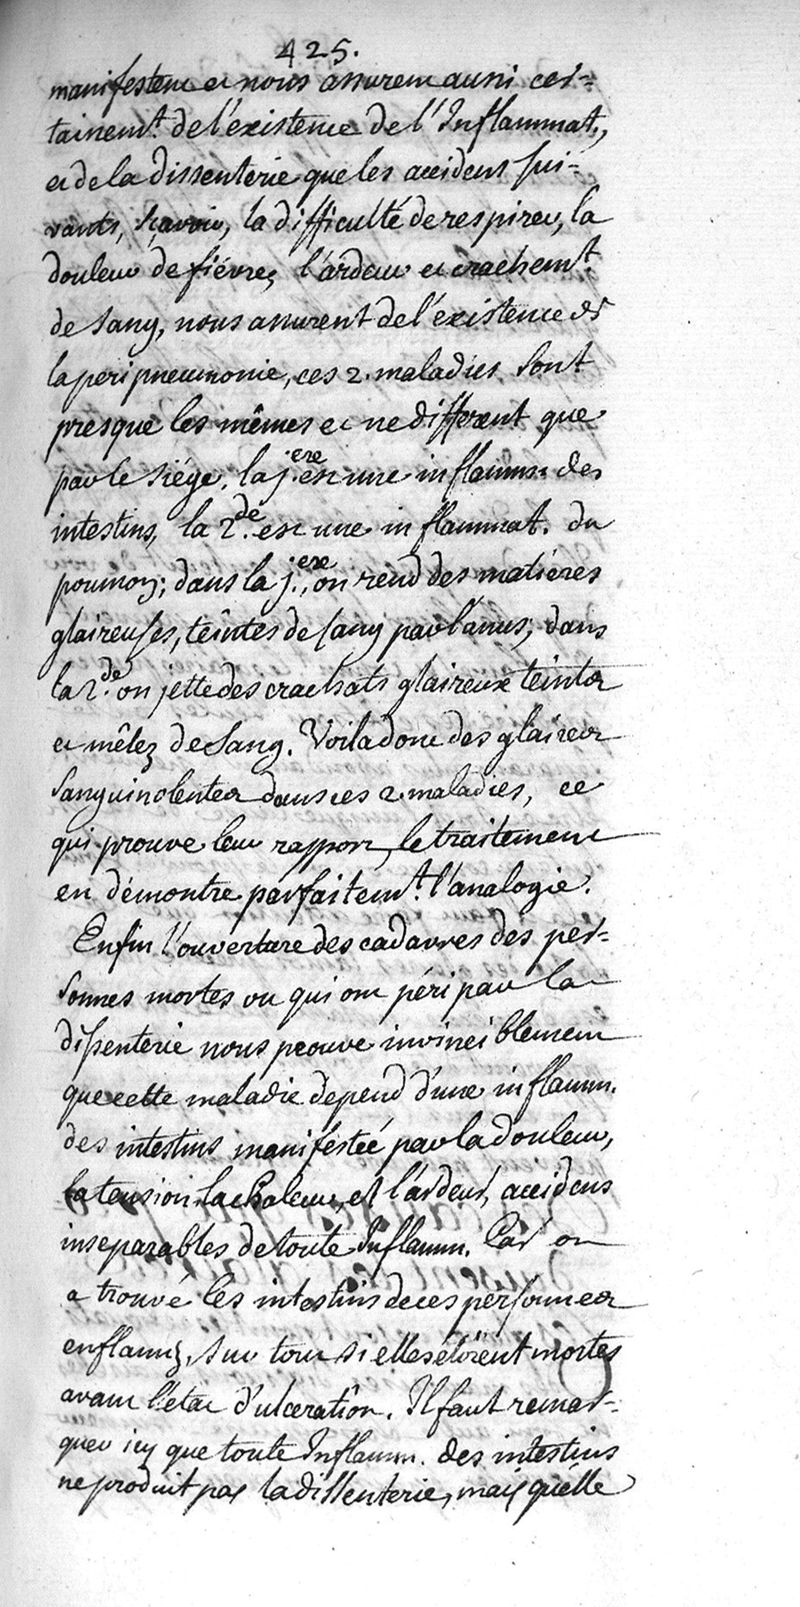 425.
manifestent et nous assurent aussi cer-
tainemt. de l'éxistence de l'Inflammat.,
et de la dissenterie que les accidens sui-
vants, sçavoir, la difficulté de respirer, la
douleur de fiévre, l'ardeur et crachemt.
de sang, nous assurent de l'éxistence de
la peripneumonie, ces 2. maladies sont
presque les mêmes et ne different que
par le siége. la j.ere est une inflamm. des
intestins, la 2.de est une inflammat. du
poumon; dans la j.ere, on rend des matieres
glaireuses, teintes de sang par l'anus; dans
la 2.de on jette des crachats glaireux teints
et mêlez de sang. Voila donc des glaires
sanguinolentes dans ces 2 maladies, ce
qui prouve leur rapport, le traitement
en démontre parfaitemt. l'analogie.
Enfin l'ouverture des cadavres des per-
sonnes mortes ou qui ont péri par la
dissenterie nous prouve invinciblement
que cette maladie depend d'une inflamm.
des intestins maniféstée par la douleur,
la tension, la chaleur, et l'ardeur, accidens
inseparables de toute Inflamm. Car on
a trouvé les intestins de ces personnes
enflamez, sur tout si elles étoient mortes
avant l'etat d'ulceration. Il faut remar-
quer icy que toute Inflamm. des intestins
ne produit pas la dissenterie, mais quelle